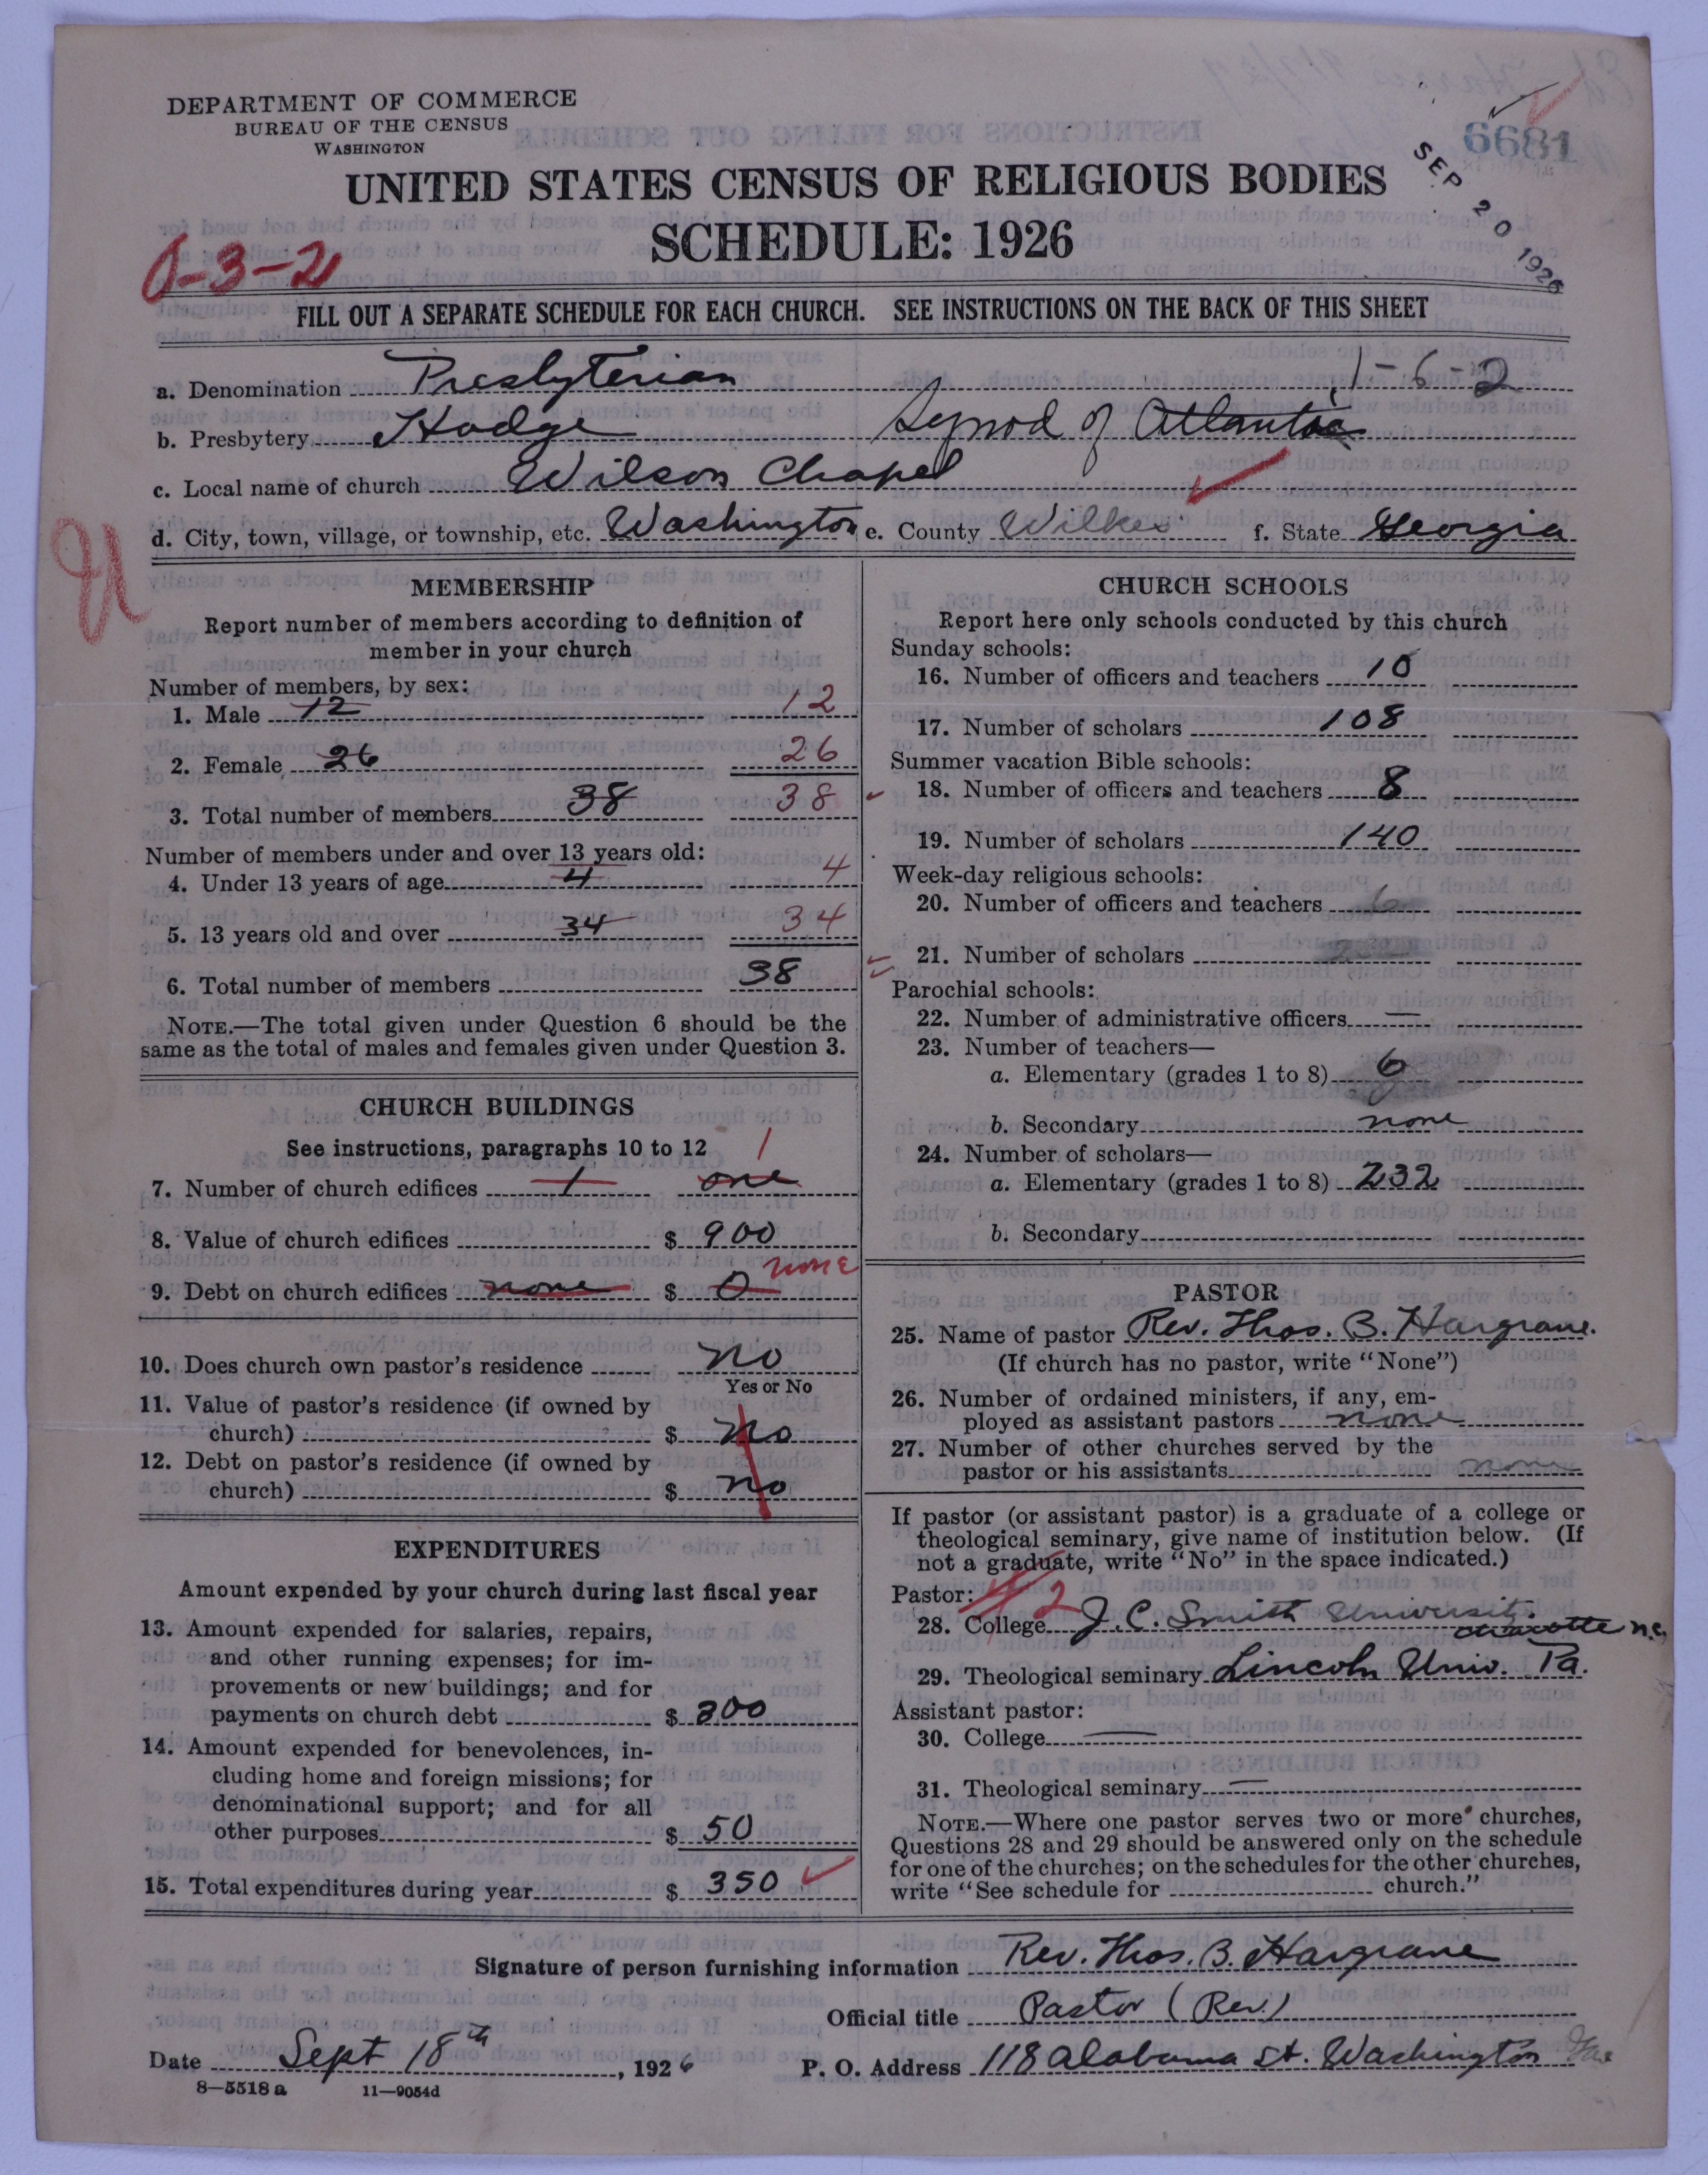 DEPARTMENT OF COMMERCE
BUREAU OF THE CENSUS
WASHINGTON
6681
SEP 20 1926
UNITED STATES CENSUS OF RELIGIOUS BODIES
SCHEDULE: 1926
0-3-2
FILL OUT A SEPARATE SCHEDULE FOR EACH CHURCH. SEE INSTRUCTIONS ON THE BACK OF THIS SHEET
a. Denomination Presbyterian 1-6-2
b. Presbytery Hodge Synod of Atlantic
c. Local name of church Wilson Chapel
d. City, town, village, or township, etc. Washington e. County Wilkes f. State Georgia
MEMBERSHIP
Report number of members according to definition of
member in your church
Number of members, by sex:
1. Male 12 12
2. Female 26 26
3. Total number of members 38 38
Number of members under and over 13 years old:
4. Under 13 years of age 4 4
5. 13 years old and over 34 34
6. Total number of members 38
NOTE.—The total given under Question 6 should be the
same as the total of males and females given under Question 3.
CHURCH BUILDINGS
See instructions, paragraphs 10 to 12
7. Number of church edifices 1 one 1
8. Value of church edifices $ 900
9. Debt on church edifices none $ 0 none
10. Does church own pastor's residence No
Yes or No
11. Value of pastor's residence (if owned by
church) $ No
12. Debt on pastor's residence (if owned by
church) $ no
EXPENDITURES
Amount expended by your church during last fiscal year
13. Amount expended for salaries, repairs,
and other running expenses; for im-
provements or new buildings; and for
payments on church debt $ 300
14. Amount expended for benevolences, in-
cluding home and foreign missions; for
denominational support; and for all
other purposes $ 50
15. Total expenditures during year $ 350
CHURCH SCHOOLS
Report here only schools conducted by this church
Sunday schools:
16. Number of officers and teachers 10
17. Number of scholars 108
Summer vacation Bible schools:
18. Number of officers and teachers 8
19. Number of scholars 140
Week-day religious schools:
20. Number of officers and teachers 6
21. Number of scholars
Parochial schools:
22. Number of administrative officers —
23. Number of teachers—
a. Elementary (grades 1 to 8) 6
b. Secondary none
24. Number of scholars—
a. Elementary (grades 1 to 8) 232
b. Secondary
PASTOR
25. Name of pastor Rev. Thos. B. Hargrave.
(If church has no pastor, write "None")
26. Number of ordained ministers, if any, em-
ployed as assistant pastors none
27. Number of other churches served by the
pastor or his assistants none
If pastor (or assistant pastor) is a graduate of a college or
theological seminary, give name of institution below. (If
not a graduate, write "No" in the space indicated.)
Pastor: 2
28. College J. C. Smith University. Charlotte N.C.
29. Theological seminary Lincoln Univ. Pa.
Assistant pastor:
30. College —
31. Theological seminary —
NOTE.—Where one pastor serves two or more churches,
Questions 28 and 29 should be answered only on the schedule
for one of the churches; on the schedules for the other churches,
write "See schedule for church."
Signature of person furnishing information Rev. Thos. B. Hargrave
Official title Pastor (Rev.)
Date Sept 18th, 1926 P. O. Address 118 Alabama St. Washington
8—5518 a 11—9054d